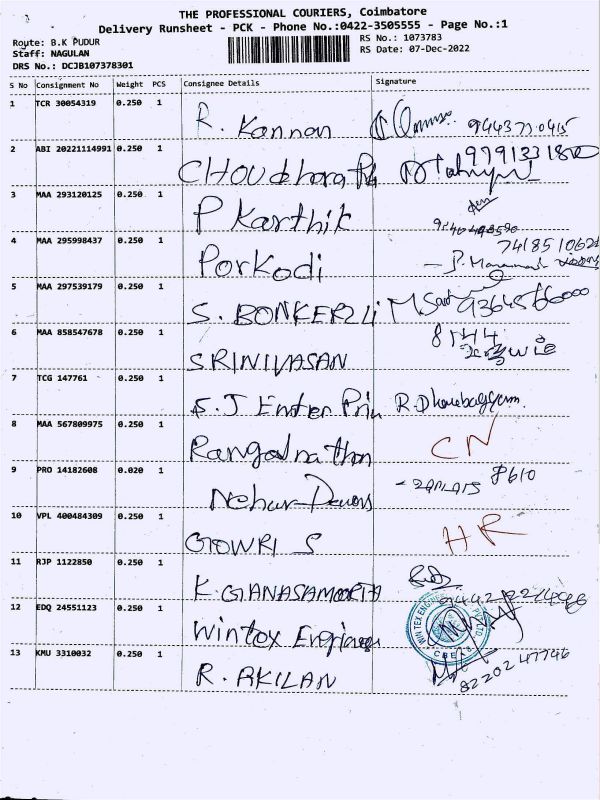 THE PROFESSIONAL COURIERS, Coimbatore
Delivery Runsheet - PCK - Phone No.:0422-3505555 - Page No.:1
Route: B.K PUDUR
RS No.: 1073783
Staff: NAGULAN
RS Date: 07-Dec-2022
DRS No.: DCJB107378301
S No Consignment No Weight PCS Consignee Details Signature
1 TCR 30054319 0.250 1 R. Kannan 9443770415
2 ABI 20221114991 0.250 1 Choudhora 9791331800
3 MAA 293120125 0.250 1 P Karthik
4 MAA 295998437 0.250 1 Porkodi
5 MAA 297539179 0.250 1 S. BONKERZLI
6 MAA 858547678 0.250 1 SRINIVASAN 8144
7 TCG 147761 0.250 1 S.J Enter Prin
8 MAA 567809975 0.250 1 Ranganathan CN
9 PRO 14182608 0.020 1 8610
10 VPL 400484309 0.250 1 GOWRI S HR
11 RJP 1122850 0.250 1 K. GANASAMOORTA
12 EDQ 24551123 0.250 1 Wintex Engineer
13 KMU 3310032 0.250 1 R. AKILAN 8220247746